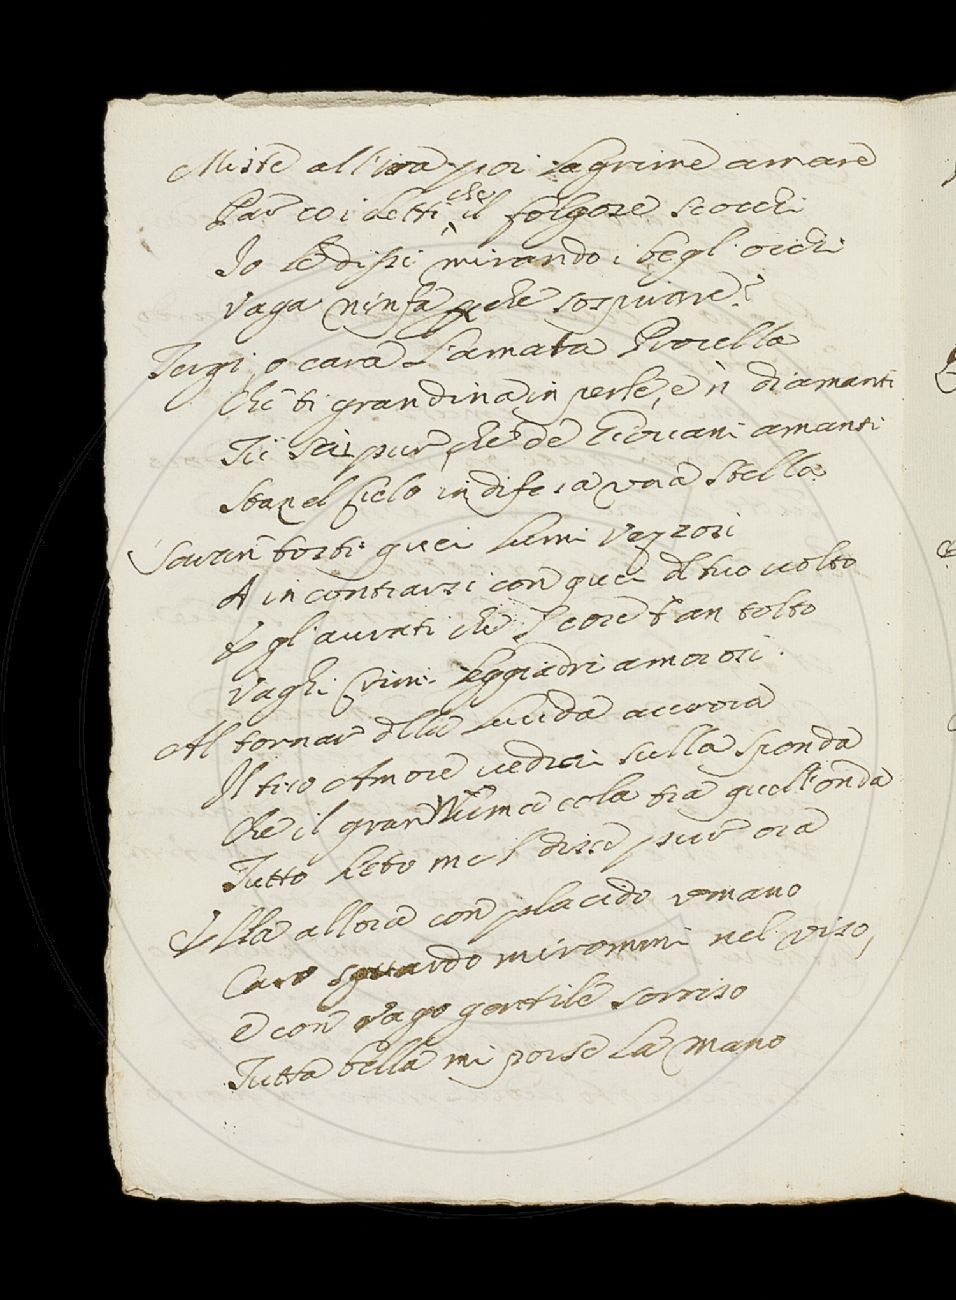 Miste all'ira poi lagrime amare
Par co i detti che il folgore scocchi
Io le dissi mirando i begl'occhi
Vaga ninfa perche sospirare?
Tergi o cara l'amata Procella
Che ti grandina in perle, e in diamanti
Tu sei pur che de Giovani amanti
Sta nel Cielo in difesa una Stella
Savan tosti quei lumi Vezzosi
A incontrarsi con quei del tuo volto
E gl'aurati che l core t'an tolto
Vaghi Crini leggiadri amorosi.
Al tornar della lucida aurora
Il tuo Amore vedrai sulla sponda
Che il gran Nume cola tra quell'onda
Tutto lieto me l disse pur ora
Ella allora con placido umano
Caro sguardo mirommi nel viso,
e con vago gentile sorriso
Tutta bella mi porse la mano